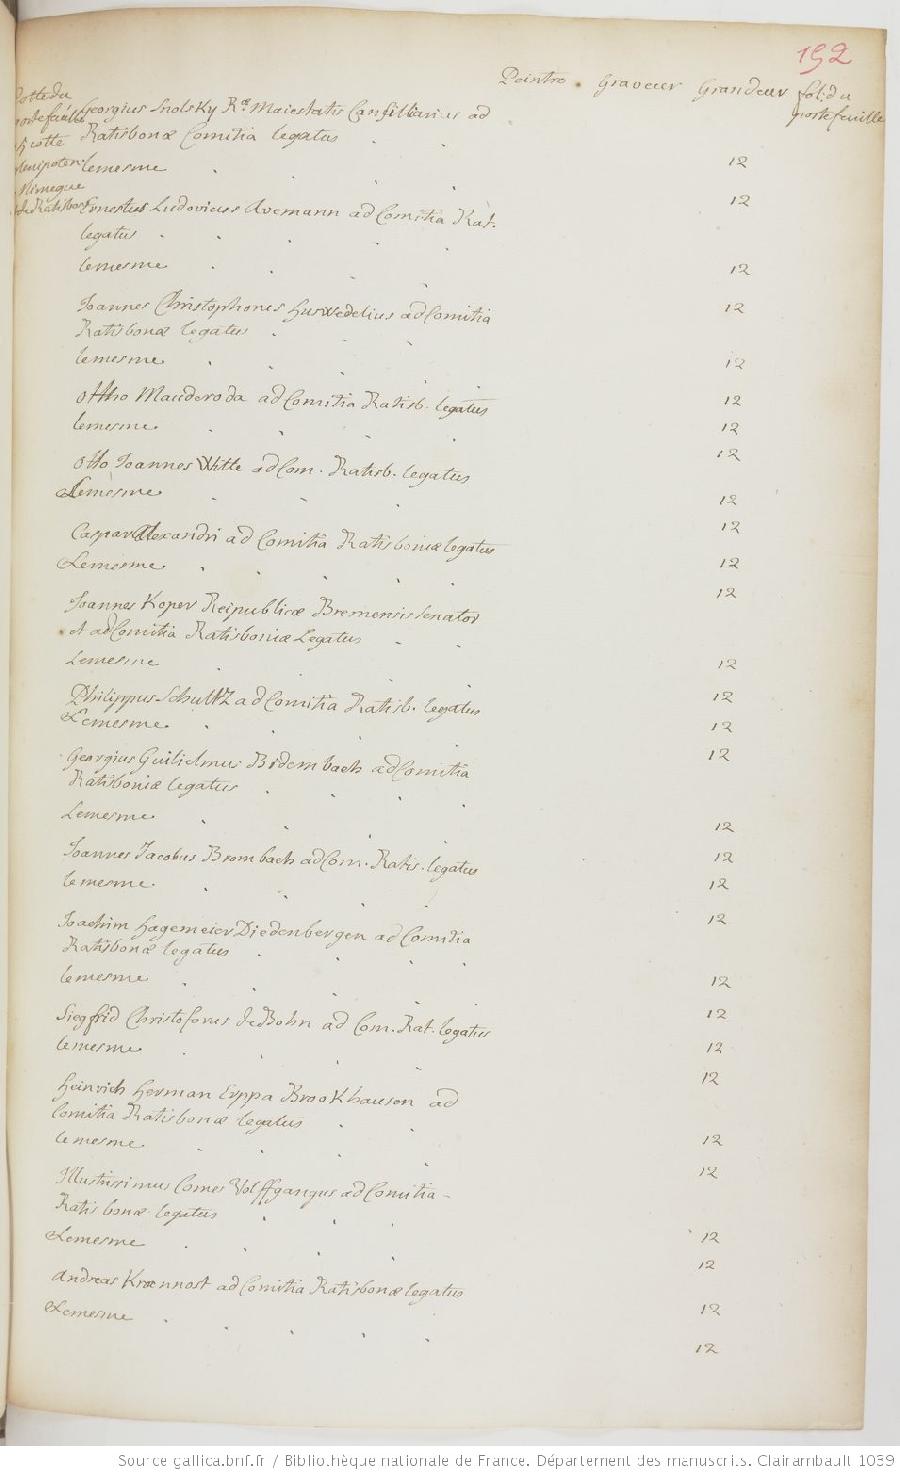 192
Peintre. Graveur Grandeur fol. du
portefeuille
Cotte du
portefeuille
Georgius Snolsky Rae. Maiestatis Consiliarius ad
Ratisbonæ Comitia legatus
lemesme 12
Ernestus Ludovicus Avemann ad Comitia Rat. 12
legatus
lemesme 12
Joannes Christophorus Huswedelius ad Comitia 12
Ratisbonæ legatus
lemesme 12
Ottho Mauderoda ad Comitia Ratisb. legatus 12
lemesme 12
Otto Joannes Witte ad Com. Ratisb. legatus 12
Lemesme 12
Caspar Alexandri ad Comitia Ratisboniæ legatus 12
Lemesme 12
Joannes Koper Reipublicæ Bremensis Senator 12
et ad Comitia Ratisboniæ Legatus
Lemesme 12
Philippus Schultz ad Comitia Ratisb. legatus 12
Lemesme 12
Georgius Guilielmus Bidembach ad Comitia 12
Ratisboniæ legatus
Lemesme 12
Joannes Jacobus Brombach ad Com. Ratis. legatus 12
lemesme 12
Joachim Hagemeier Diedenbergen ad Comitia 12
Ratisbonæ legatus
lemesme 12
Siegfrid Christoforus de Bohn ad Com. Rat. legatus 12
lemesme 12
Heinrich Herman Erppa Brookhausen ad 12
Comitia Ratisbonæ legatus
lemesme 12
Illustrissimus Comes Volffgangus ad Comitia 12
Ratisbonæ legatus
Lemesme 12
Andreas Kroennost ad Comitia Ratisbonæ legatus 12
Lemesme 12
12
Source gallica.bnf.fr / Bibliothèque nationale de France. Département des manuscrits. Clairambault 1039